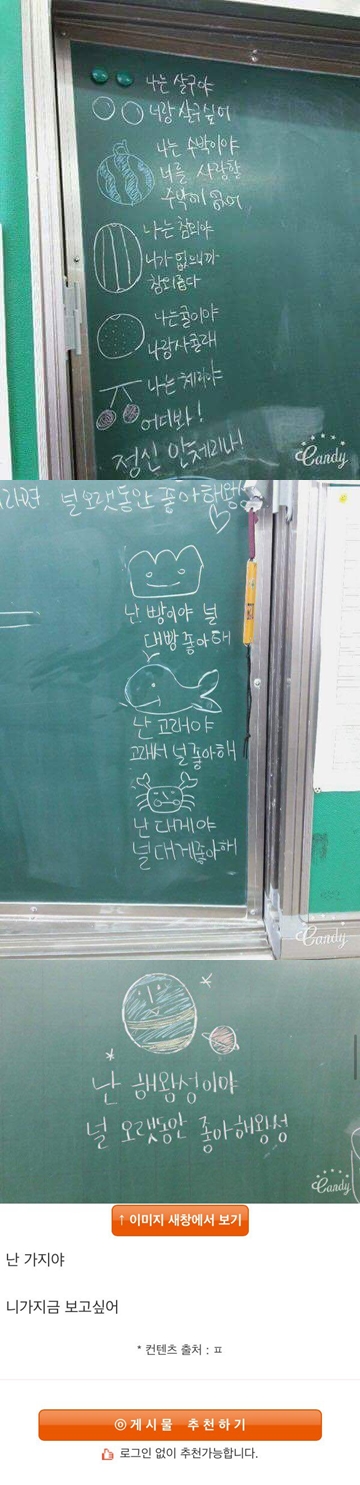 나는 살구야
너랑 살구싶어
나는 수박이야
너를 사랑할
수박에 없어
나는 참외야
니가 없으니까
참외롭다
나는귤이야
나랑사귤래
나는 체리야
어디봐!
정신 안체리나!
Candy
널오랫동안 좋아해왕성
난 빵이야 널
대빵좋아해
난 고래야
고래서 널좋아해
난 대게야
널대게좋아해
Candy
난 해왕성이야
널 오랫동안 좋아해왕성
Candy
↑ 이미지 새창에서 보기
난 가지야
니가지금 보고싶어
* 컨텐츠 출처 : ㅍ
◎ 게 시 물 추 천 하 기
로그인 없이 추천가능합니다.